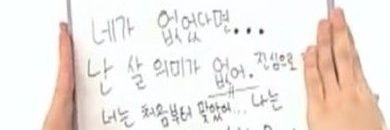 네가 없었다면...
난 살 의미가 없어. 진심으로
너는 처음부터 맞았어... 나는